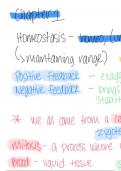 Chapter 1
Homeostasis - homeo,
(→ maintaining range)
Positive Feedback -
Negative Feedback - brings
* we all come from a
mitosis - a process where
Blood - liquid tissue